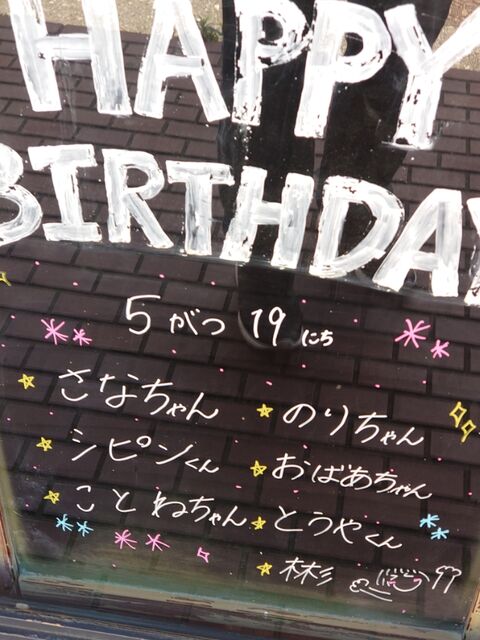 HAPPY
BIRTHDAY
5がつ19にち
さなちゃん
のりちゃん
シピンくん
おばあちゃん
ことねちゃん
とうやくん